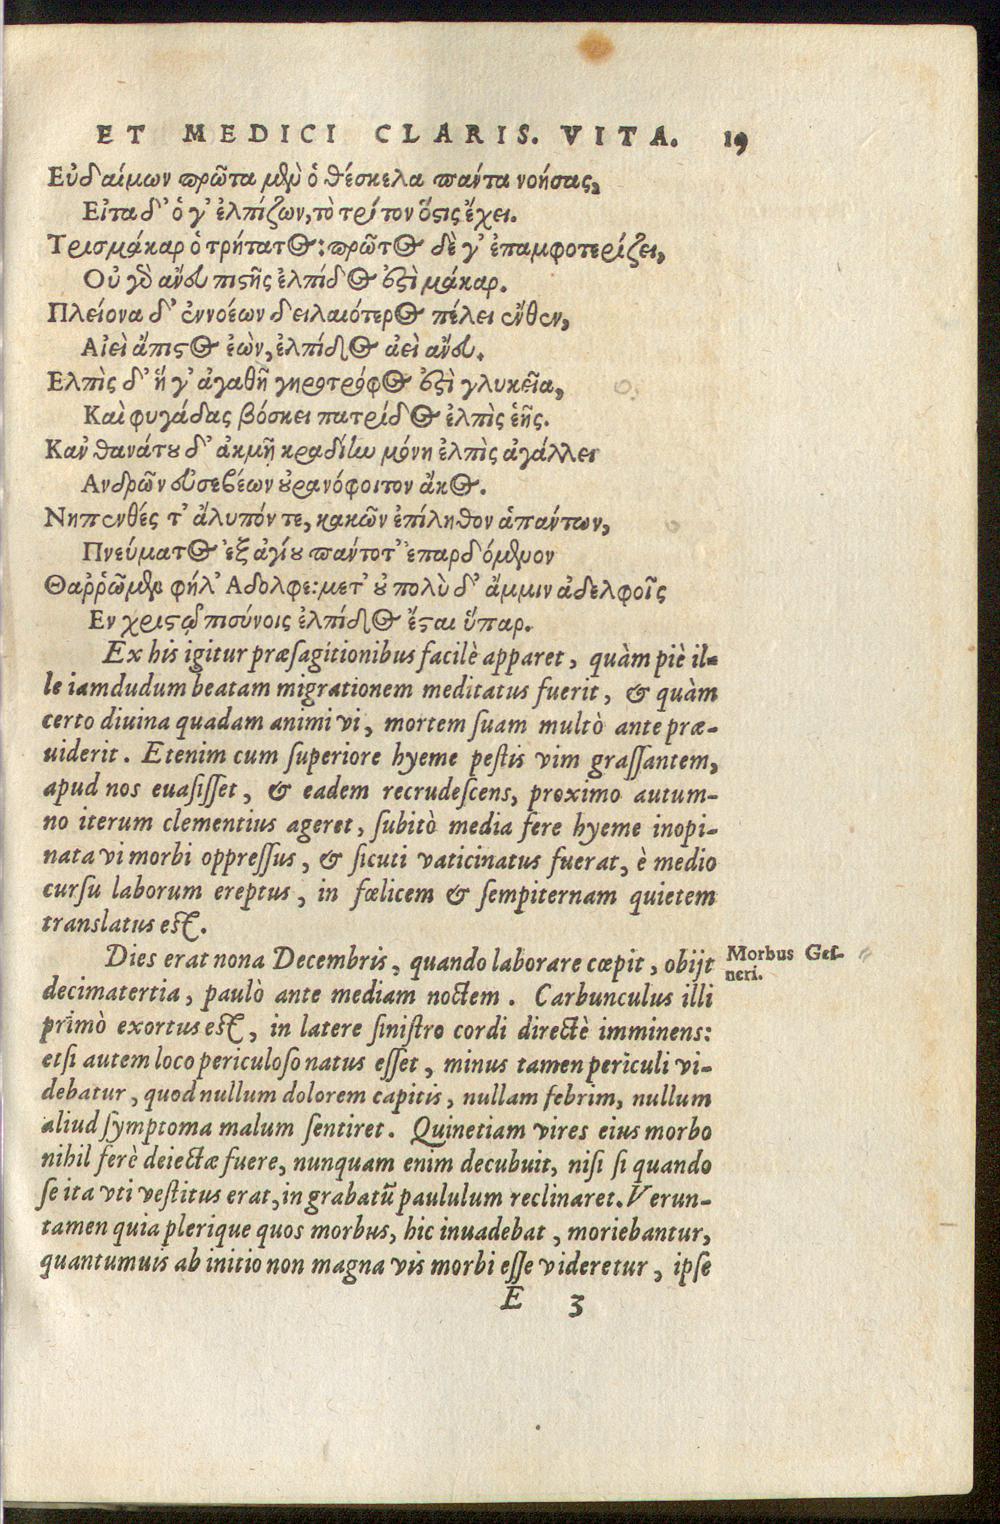 ET MEDICI CLARIS. VITA. 19
Εὐδαίμων πρῶτα μὲν ὁ θέσκελα πάντα νοήσας,
Εἶτα δ' ὁ γ' ἐλπίζων, τὸ τρίτον ὅστις ἔχει.
Τρισμάκαρ ὁ τρήτατος: πρῶτος δὲ γ' ἐπαμφοτερίζει,
Οὐ γὸ ἄνευ πιστῆς ἐλπίδος ἐστὶ μάκαρ.
Πλείονα δ' ἐννοέων δειλαιότερος πέλει ἔνθεν,
Αἰεὶ ἄπιστος ἐὼν, ἐλπίδος ἀεὶ ἄνευ.
Ελπὶς δ' ἥ γ' ἀγαθῆ γηροτρόφος ἐστὶ γλυκεῖα,
Καὶ φυγάδας βόσκει πατρίδος ἐλπὶς ἑῆς.
Καν θανάτου δ' ἀκμῇ κραδίην μόνη ἐλπὶς ἀγάλλει
Ανδρῶν εὐσεβέων οὐρανόφοιτον ἄκος.
Νηπενθές τ' ἄλυπόν τε, κακῶν ἐπίληθον ἁπάντων,
Πνεύματος ἐξ ἁγίου πάντοτ' ἐπαρδόμενον
Θαῤῥῶμεν φήλ' Αδολφε: μετ' οὐ πολὺ δ' ἄμμιν ἀδελφοῖς
Εν χριστῷ πισύνοις ἐλπίδος ἔσται ὕπαρ.
Ex his igitur præsagitionibus facilè apparet, quàm piè il-
le iamdudum beatam migrationem meditatus fuerit, & quàm
certo diuina quadam animi vi, mortem suam multò ante præ-
uiderit. Etenim cum superiore hyeme pestis vim grassantem,
apud nos euasisset, & eadem recrudescens, proximo autum-
no iterum clementius ageret, subitò media fere hyeme inopi-
nata vi morbi oppressus, & sicuti vaticinatus fuerat, è medio
cursu laborum ereptus, in fœlicem & sempiternam quietem
translatus est.
Dies erat nona Decembris, quando laborare cœpit, obijt
Morbus Ges-
neri.
decimatertia, paulò ante mediam noctem. Carbunculus illi
primò exortus est, in latere sinistro cordi directè imminens:
etsi autem loco periculoso natus esset, minus tamen periculi vi-
debatur, quod nullum dolorem capitis, nullam febrim, nullum
aliud symptoma malum sentiret. Quinetiam vires eius morbo
nihil ferè deiectæ fuere, nunquam enim decubuit, nisi si quando
se ita vti vestitus erat, in grabatū paululum reclinaret. Verun-
tamen quia plerique quos morbus, hic inuadebat, moriebantur,
quantumuis ab initio non magna vis morbi esse videretur, ipse
E 3